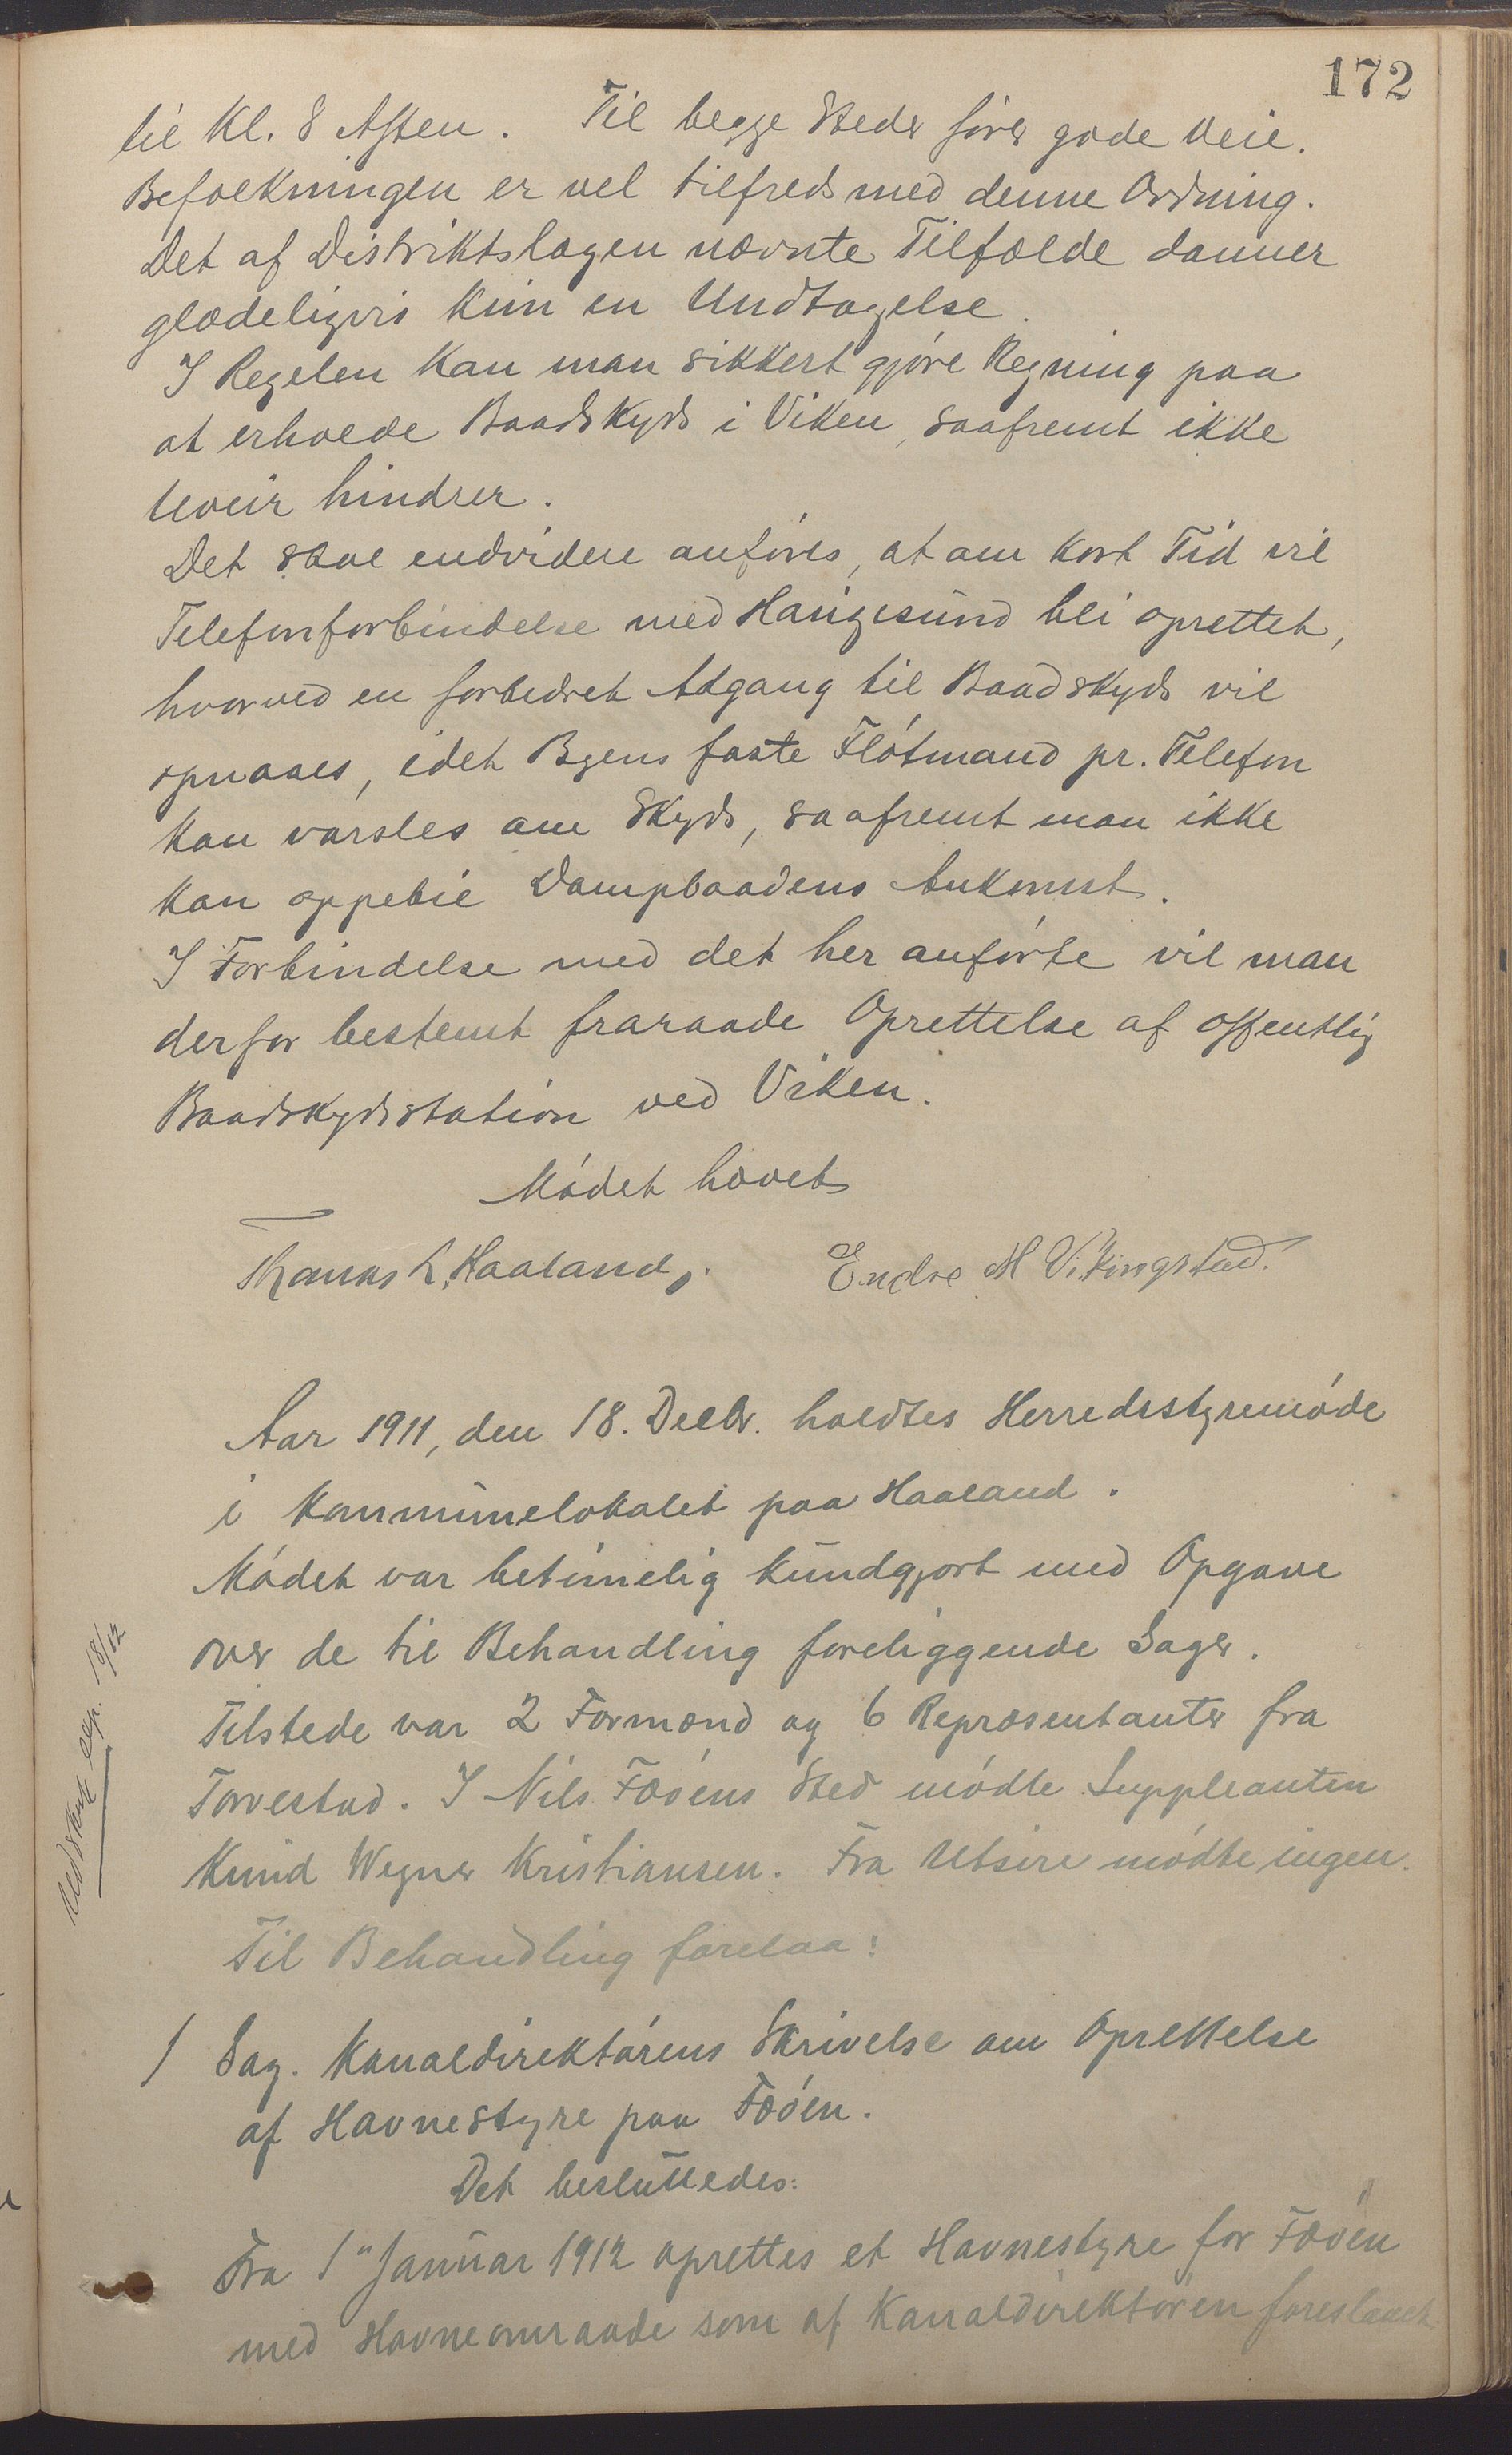 172
til Kl. 8 Aften. Til begge Steder fører gode Veie.
Befolkningen er vel tilfreds med denne Ordning.
Det af Distriktslægen nævnte Tilfælde danner
glædeligvis kun en Undtagelse.
I Regelen kan man sikkert gjøre Regning paa
at erholde Baadskyds i Viken, saafremt ikke
Uveir hindrer.
Det skal endvidere anføres, at om kort Tid vil
Telefonforbindelse med Haugesund bli oprettet,
hvorved en forbedret Adgang til Baadskyds vil
opnaaes, idet Byens faste Fløtmand pr. Telefon
kan varsles om Skyds, saafremt man ikke
kan oppebie Dampbaadens Ankomst.
I Forbindelse med det her anførte vil man
derfor bestemt fraraade Oprettelse af offentlig
Baadskydsstation ved Viken.
Mødet hævet
Thomas L. Haaland. Endre M Vikingstad.
Aar 1911, den 18. Decbr. holdtes Herredsstyremøde
i Kommunelokalet paa Haaland.
Mødet var betimelig kundgjort med Opgave
over de til Behandling foreliggende Sager.
Tilstede var 2 Formænd og 6 Repræsentanter fra
Torvestad. I Nils Fæøens Sted mødte Suppleanten
Knud Wegner Kristiansen. Fra Utsire mødte ingen.
Udskrift exp. 18/12
Til Behandling forelaa:
1 Sag. Kanaldirektørens Skrivelse om Oprettelse
af Havnestyre paa Fæøen.
Det besluttedes:
Fra 1" Januar 1912 oprettes et Havnestyre for Fæøen
med Havneomraade som af Kanaldirektøren foreslaaet